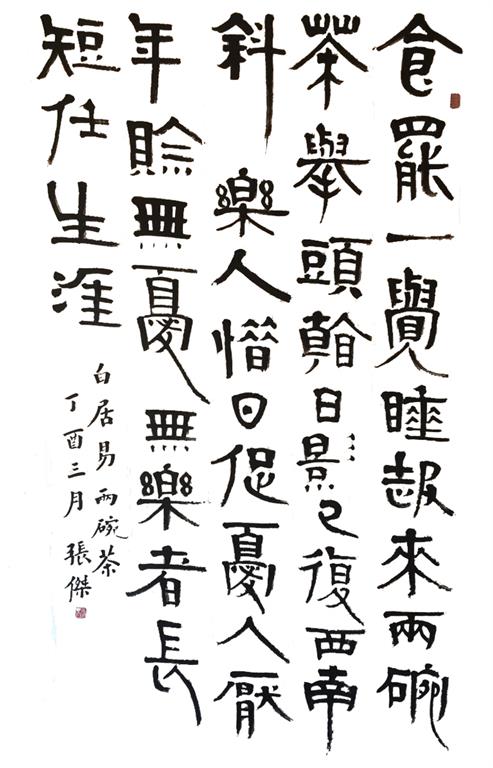 食罷一覺睡起來兩碗
茶舉頭看日景已復西南
斜樂人惜日促憂人厭
年賒無憂無樂者長
短任生涯
白居易兩碗茶
丁酉三月張傑